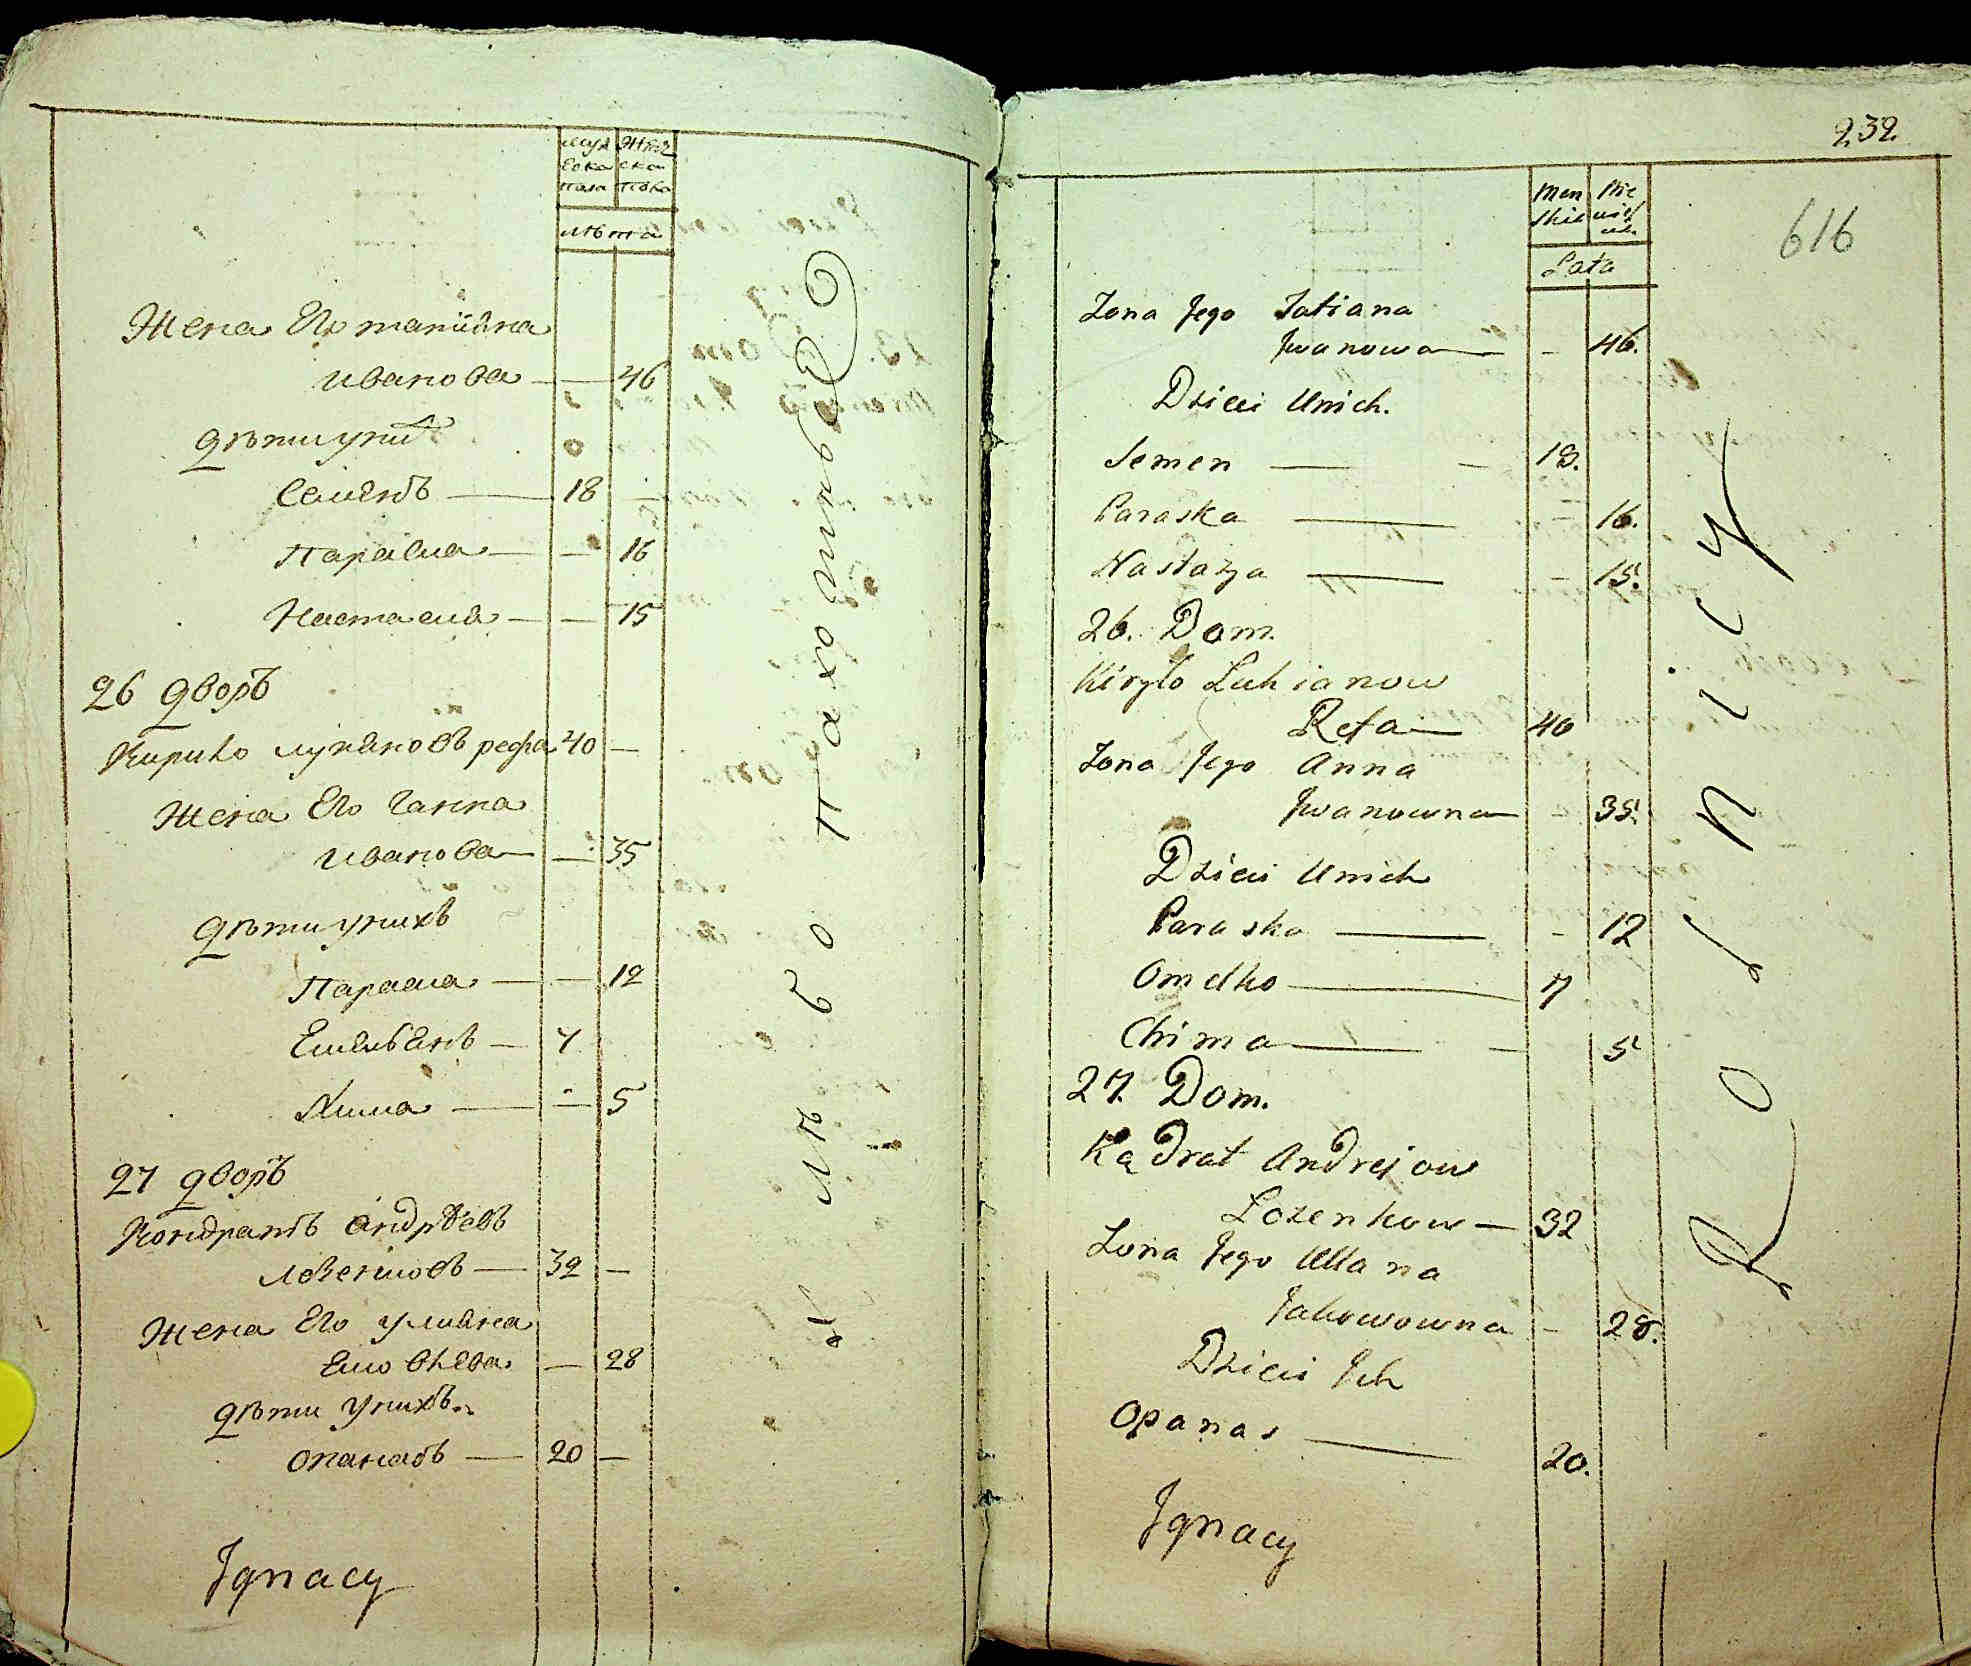 муж
еска
пола
женс
ска
пола
лѣта
Жена Его татиянна
иванова — — 46
дѣти у них
Семенъ — 18 —
Параска — — 16
Настасия — — 15
26 дворъ
Кирило лукяновъ рефа 40 —
Жена Его Ганна
иванова — — 35
дѣти у нихъ
Параска — — 12
Емельянъ — 7
Хима — — 5
27 дворъ
Кондратъ андрѣевъ
лозенковъ — 32 —
Жена Его улияна
— 28
дѣти у нихъ
опанасъ — 20 —
Ignacy
лѣбо пахотныя
232
616
Męn
skie
Lata
Żona Jego Tatiana
Jwanowa — - 46.
Dzieci Unich.
Semen — - 18.
Paraska — 16.
Nastazya — - 15.
26. Dom.
Kiryło Lukianow
Refa — 40
Żona Jego Anna
Jwanowna - 35.
Dzieci Unich
Paraska — - 12
Omelko — 7
Chima — - 5
27. Dom.
Kądrat Andrejow
Lozenkow — 32
Żona Jego Ullana
Jakowowna - 28.
Dzieci Ich
Opanas — 20.
Ignacy
Rolnicy